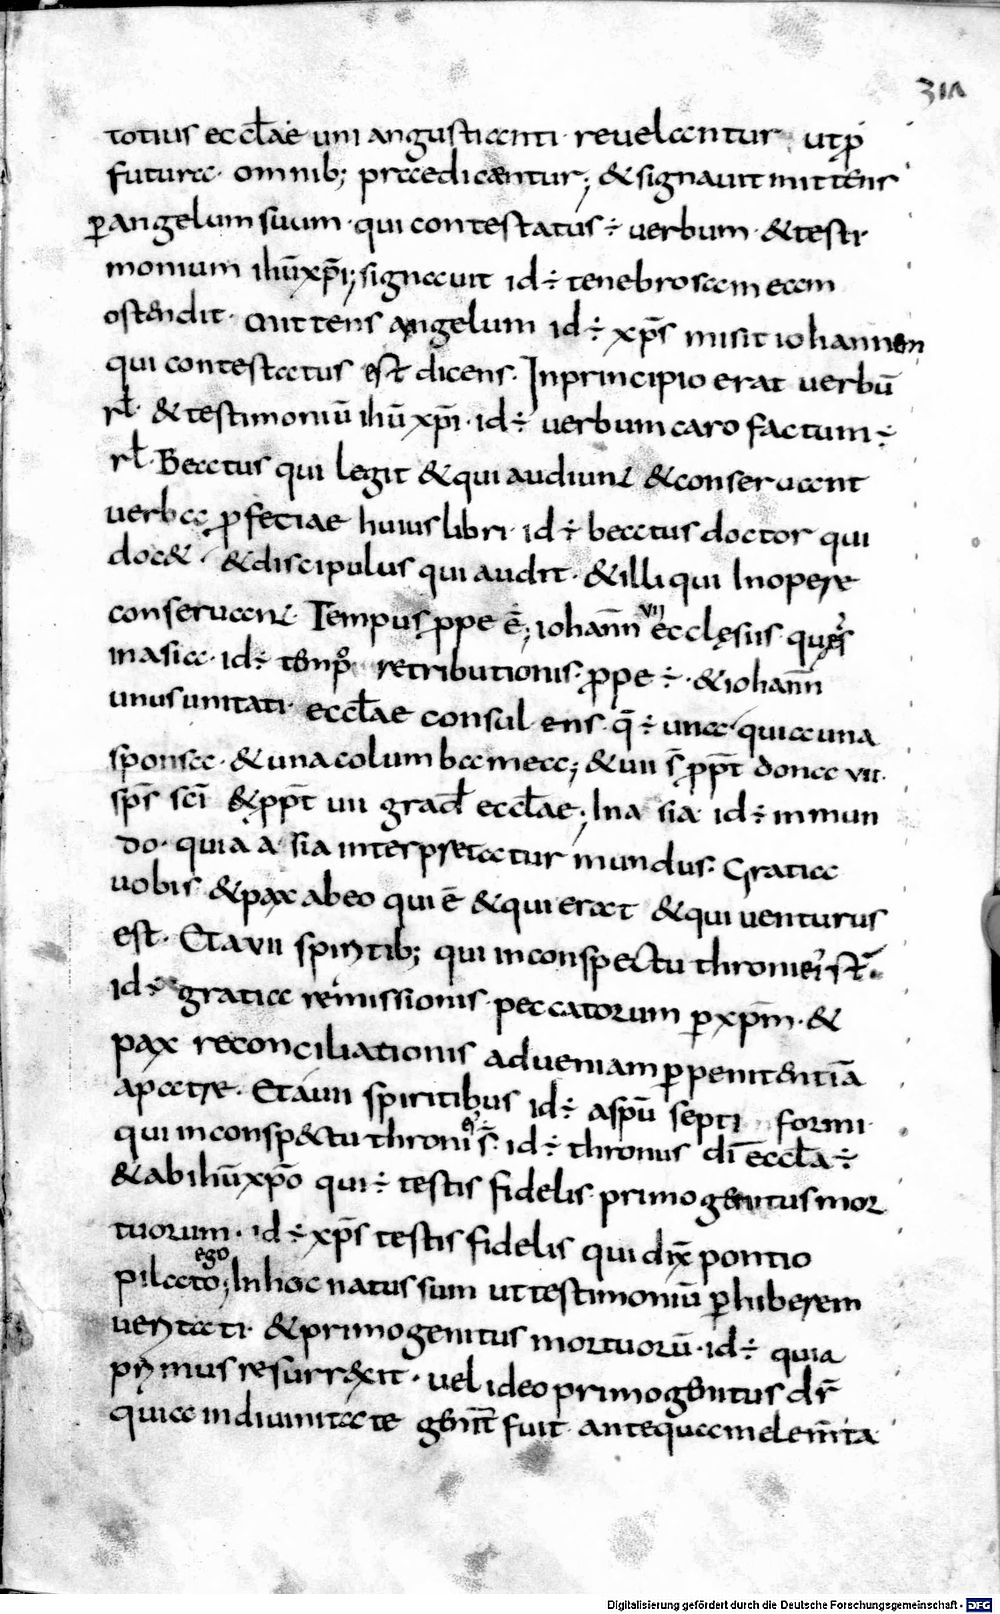 totius eccłae uni angustianti · reuelantur · ut ꝓ
futura · omnib; praedicantur; & signauit mittens
ꝑ angelum suum · qui contestatus ÷ uerbum · & testi
monium ihū xp̄i; signauit id ÷ tenebrosam eam
ostendit · mittens angelum id ÷ xp̄s misit iohannem
qui contestatus est dicens · In principio erat uerbū
rł · & testimoniū ihū xp̄i · id ÷ uerbum caro factum ÷
rł · Beatus qui legit & qui audiunt & conseruant
uerba ꝓfetiae huius libri · id ÷ beatus doctor qui
doc& · & discipulus qui audit · & illi qui In opere
conseruant · Tempus ꝓpe ē; iohann̄ vii ecclęsiis quęs
in asia · id ÷ temp̄ retributionis · ꝓpe ÷ · & iohann̄
unus unitati · eccłae consulens · q̄ ÷ una · quia una
sponsa · & una columba mea; & uii s̄ ꝓpt̄ dona vii ·
sp̄s sc̄i & ꝓpt̄ uii grad̄ eccłae; In asia id ÷ in mun
do · quia asia interpraetatur mundus · Gratia
uobis & pax ab eo qui ē & qui erat & qui uenturus
est · Et a vii spiritib; qui in conspectu throni ei' st̄ ·
id ÷ gratia remissionis · peccatorum ꝑ xp̄m · &
pax reconciliationis ad ueniam ꝑ penitentiā
a patre · Et a uii spiritibus id ÷ a sp̄u septi formi ·
qui in consp&ctu throni ei' s̄ · id ÷ thronus dī eccła ÷
& ab ihū xp̄o qui ÷ testis fidelis · primogenitus mor
tuorum · id ÷ xp̄s testis fidelis qui dix̄ pontio
pilato; ego In hoc natus sum ut testimoniū ꝑhiberem
ueritati · & primogenitus mortuorū · id ÷ quia
primus resurr&xit · uel ideo primogenitus dr̄
quia in diuinitate genit̄ fuit antequam elem̄ta
Digitalisierung gefördert durch die Deutsche Forschungsgemeinschaft - DFG